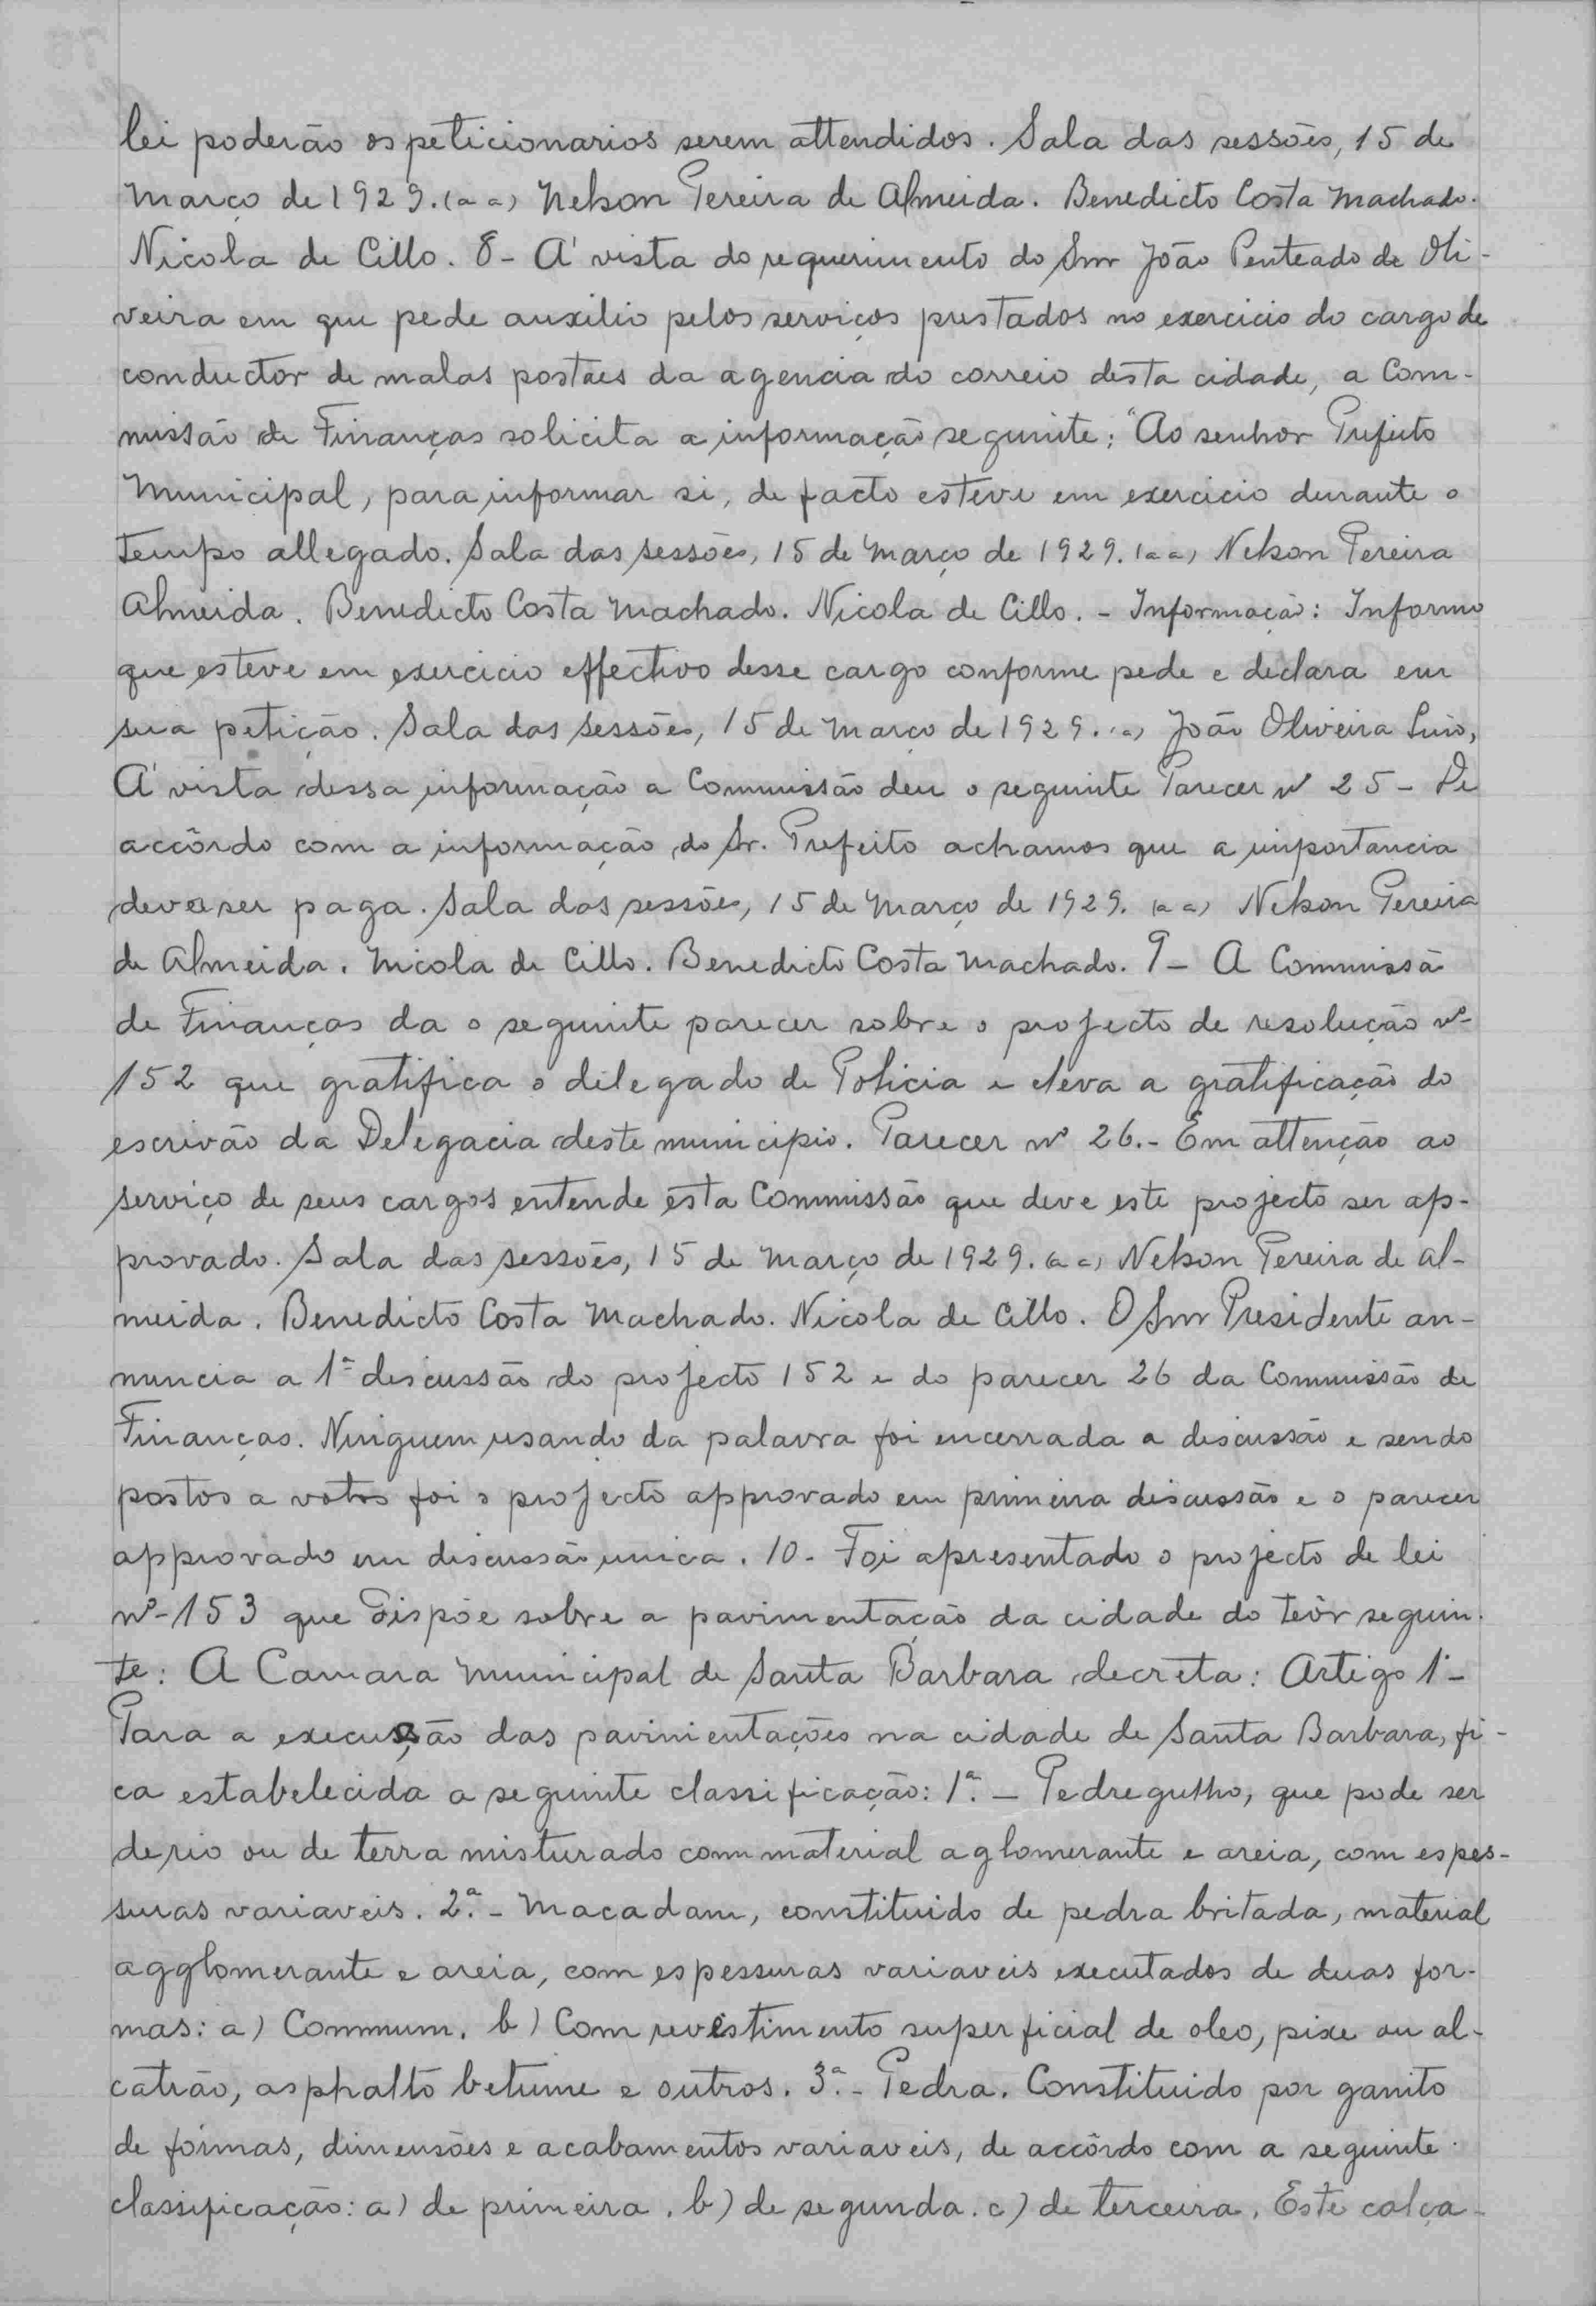 lei poderão os peticionarios serem attendidos. Sala das sessões, 15 de
Março de 1929. (a a) Nelson Pereira de Almeida. Benedicto Costa Machado.
Nicola de Cillo. 8 - A' vista do requerimento do Snr João Penteado de Oli-
veira em que pede auxilio pelos serviços prestados no exercicio do cargo de
conductor de malas postaes da agencia do correio desta cidade, a Com-
missão de Finanças solicita a informação seguinte: "Ao senhor Prefeito
Municipal, para informar si, de facto esteve em exercicio durante o
tempo allegado. Sala das sessões, 15 de Março de 1929. (a a) Nelson Pereira
Almeida. Benedicto Costa Machado. Nicola de Cillo. - Informação: Informo
que esteve em exercicio effectivo desse cargo conforme pede e declara em
sua petição. Sala das sessões, 15 de Março de 1929. (a) João Oliveira Lino,
A' vista dessa informação a Commissão deu o seguinte Parecer nº 25 - De
accôrdo com a informação do Sr. Prefeito achamos que a importancia
deve ser paga. Sala das sessões, 15 de Março de 1929. (a a) Nelson Pereira
de Almeida. Nicola de Cillo. Benedicto Costa Machado. 9 - A Commissã
de Finanças da o seguinte parecer sobre o projecto de resolução nº
152 que gratifica o delegado de Policia e eleva a gratificação do
escrivão da Delegacia deste municipio. Parecer nº 26. - Em attenção ao
serviço de seus cargos entende esta Commissão que deve este projecto ser ap-
provado. Sala das sessões, 15 de Março de 1929. (a a) Nelson Pereira de Al-
meida. Benedicto Costa Machado. Nicola de Cillo. O Snr Presidente an-
nuncia a 1ª discussão do projecto 152 e do parecer 26 da Commissão de
Finanças. Ninguem usando da palavra foi encerrada a discussão e sendo
postos a votos foi o projecto approvado em primeira discussão e o parecer
approvado em discussão unica. 10 - Foi apresentado o projecto de lei
nº - 153 que dispõe sobre a pavimentação da cidade do teôr seguin-
te: A Camara Municipal de Santa Barbara decreta: Artigo 1º -
Para a execução das pavimentações na cidade de Santa Barbara, fi-
ca estabelecida a seguinte classificação: 1ª. - Pedregulho, que pode ser
de rio ou de terra misturado com material aglomerante e areia, com espes-
suras variaveis. 2ª. - Macadam, constituido de pedra britada, material
agglomerante e areia, com espessuras variaveis executados de duas for-
mas: a) Commum. b) Com revestimento superficial de oleo, pixe ou al-
catrão, asphalto betume e outros. 3ª. - Pedra. Constituido por ganito
de fórmas, dimensões e acabamentos variaveis, de accôrdo com a seguinte
classificação: a) de primeira. b) de segunda. c) de terceira. Este calça-